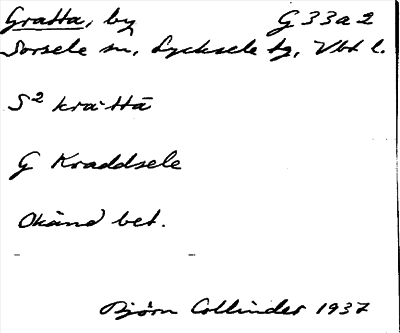 Gratta, by G 33a2
Sorsele sn, Lycksele tg, Vbt l.
S² kràttā
G Kraddsele
Okänd bet.
Björn Collinder 1937